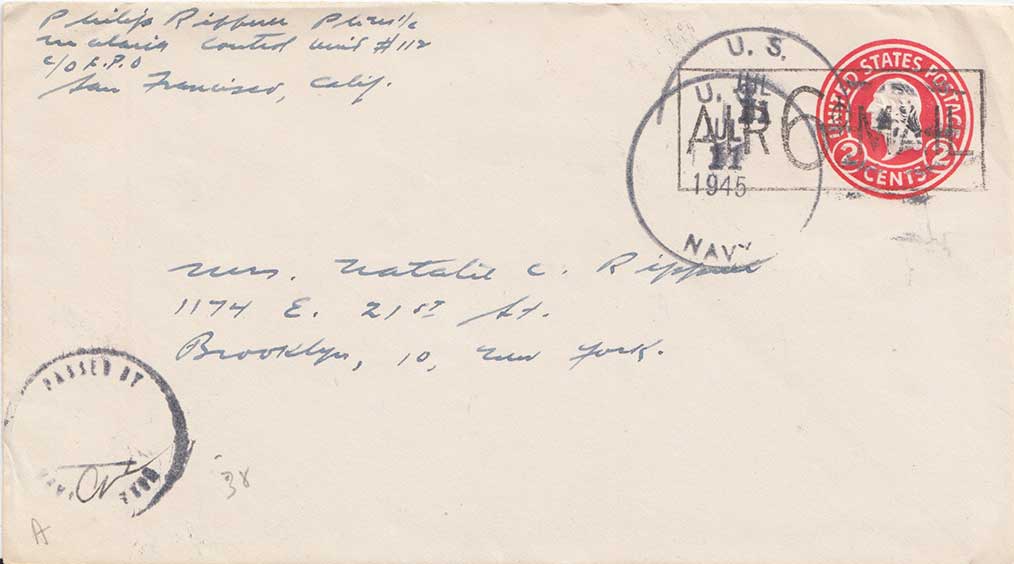 Philip Rippner PhM1/c
Malaria Control Unit #112
c/o F.P.O
San Francisco, Calif.
U. S.
JUL
11
U.
JUL
11
1945
NAVY
AIR 6¢ MAIL
UNITED STATES POSTAGE
2 CENTS 2
Mrs. Natalie C. Rippner
1174 E. 21st St.
Brooklyn, 10, New York.
PASSED BY
38
A